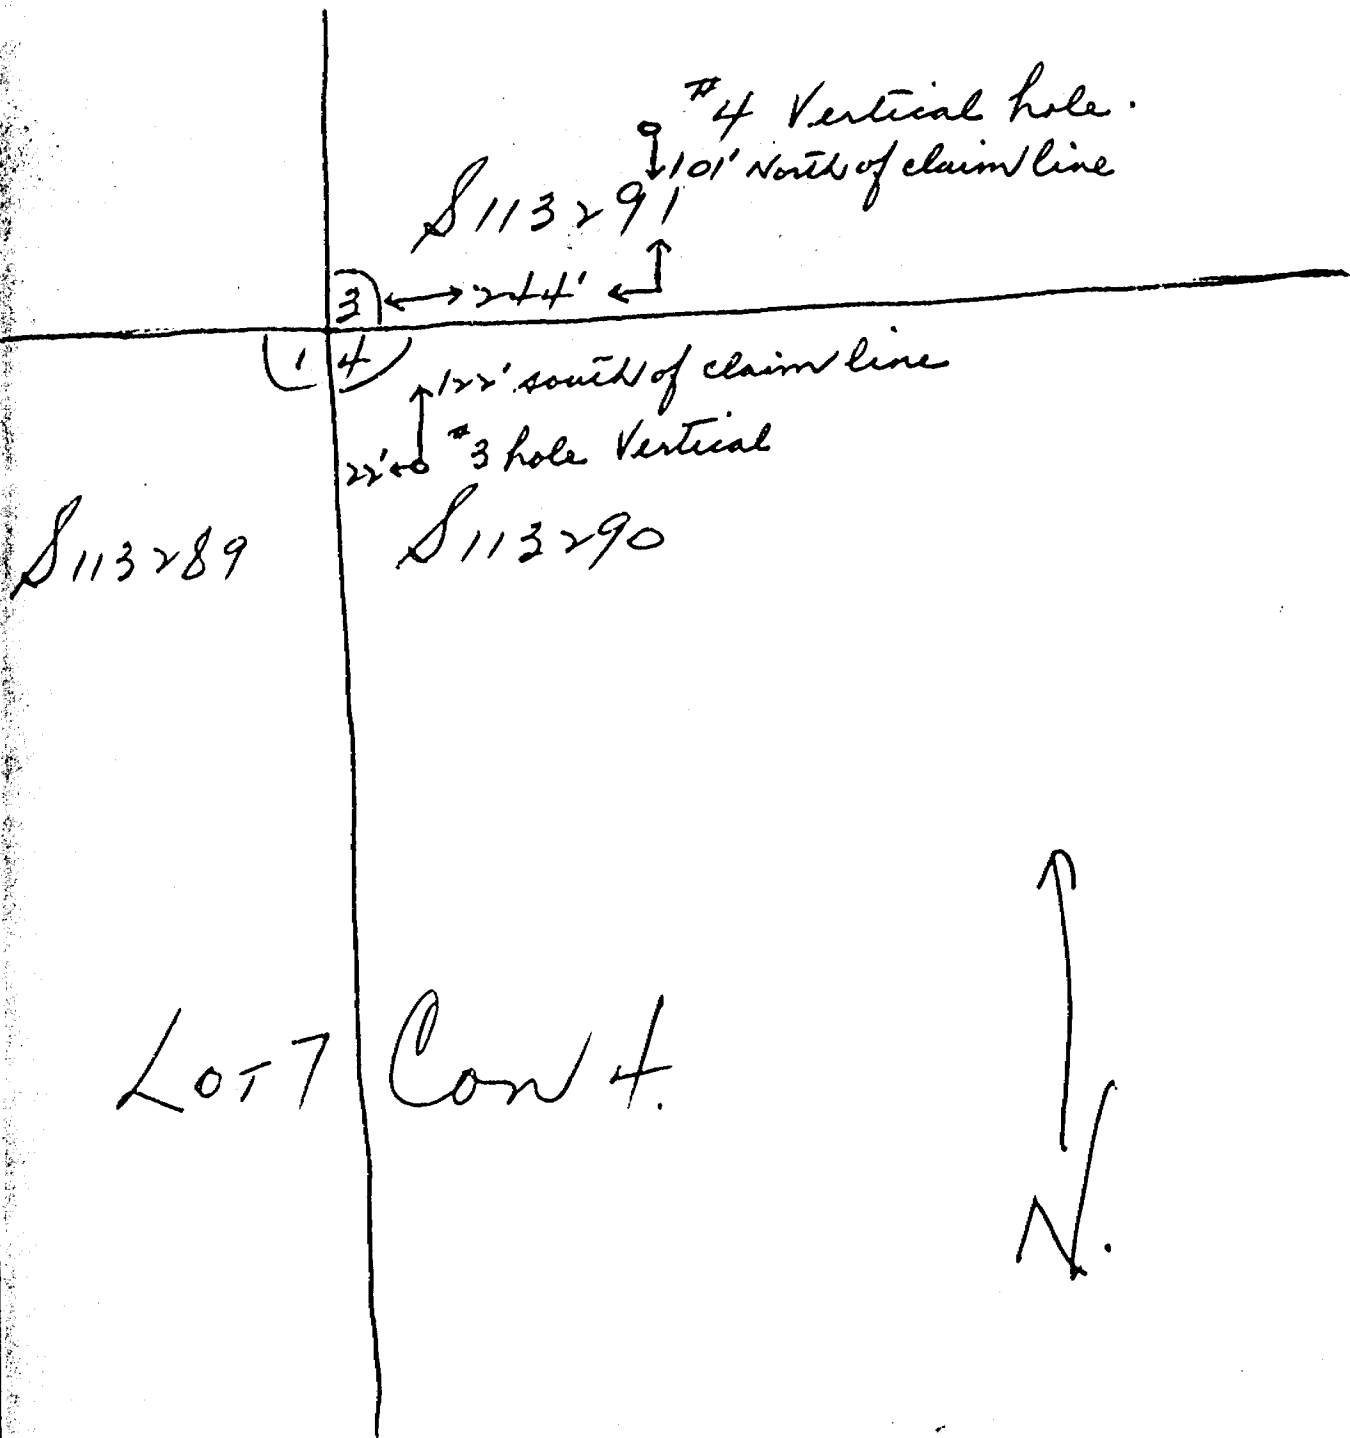 #4 Vertical hole.
101' North of claim line
S113291
3 244'
1 4
122' south of claim line
#3 hole Vertical
22'
S113289 S113290
Lot 7 Con 4.
N.